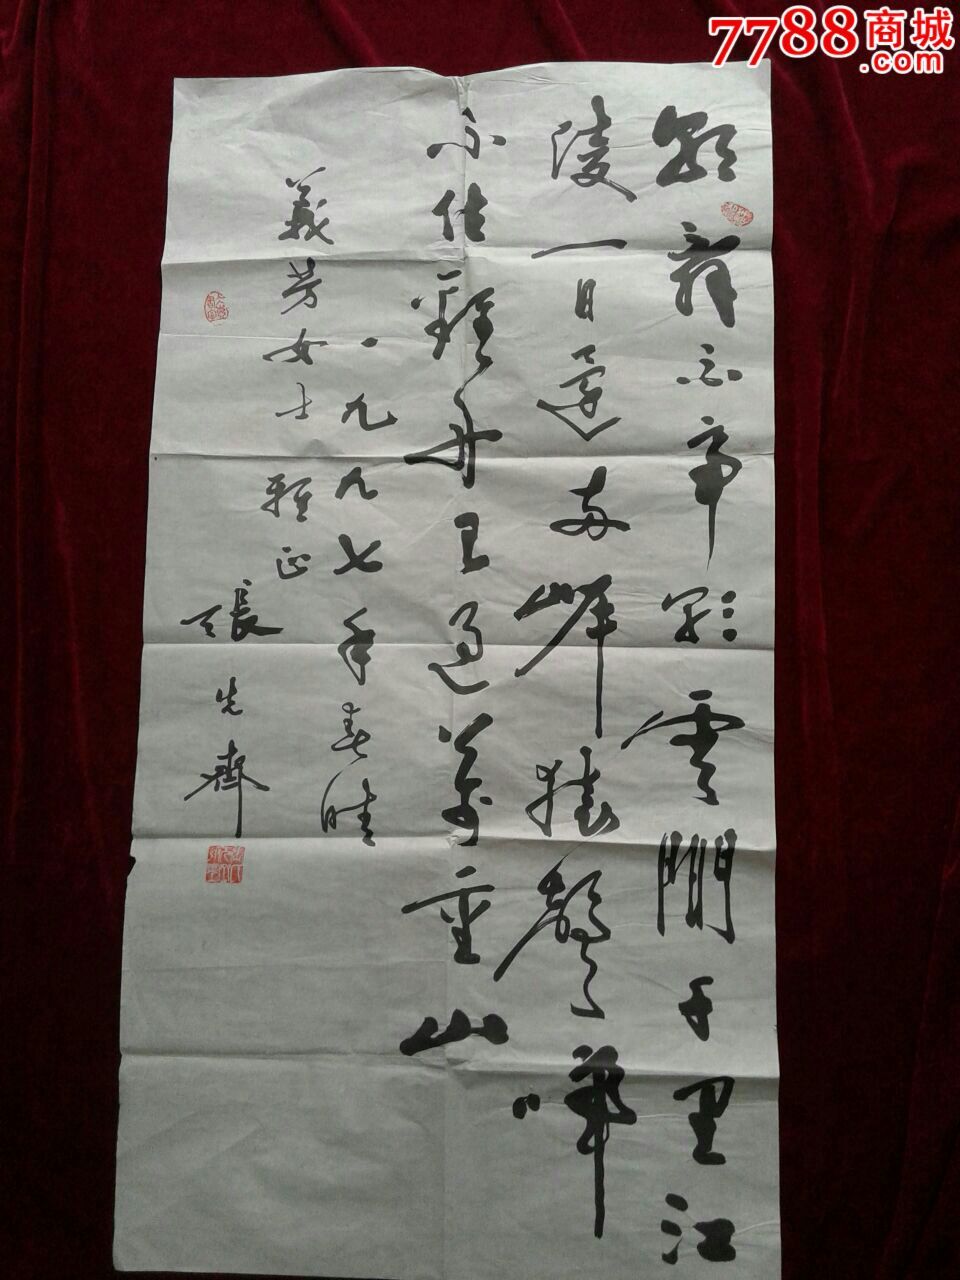 7788商城
.com
朝辭白帝彩雲間千里江
陵一日還兩岸猿聲啼
不住輕舟已過萬重山
一九九七年春晴
義芳女士雅正
張先齊